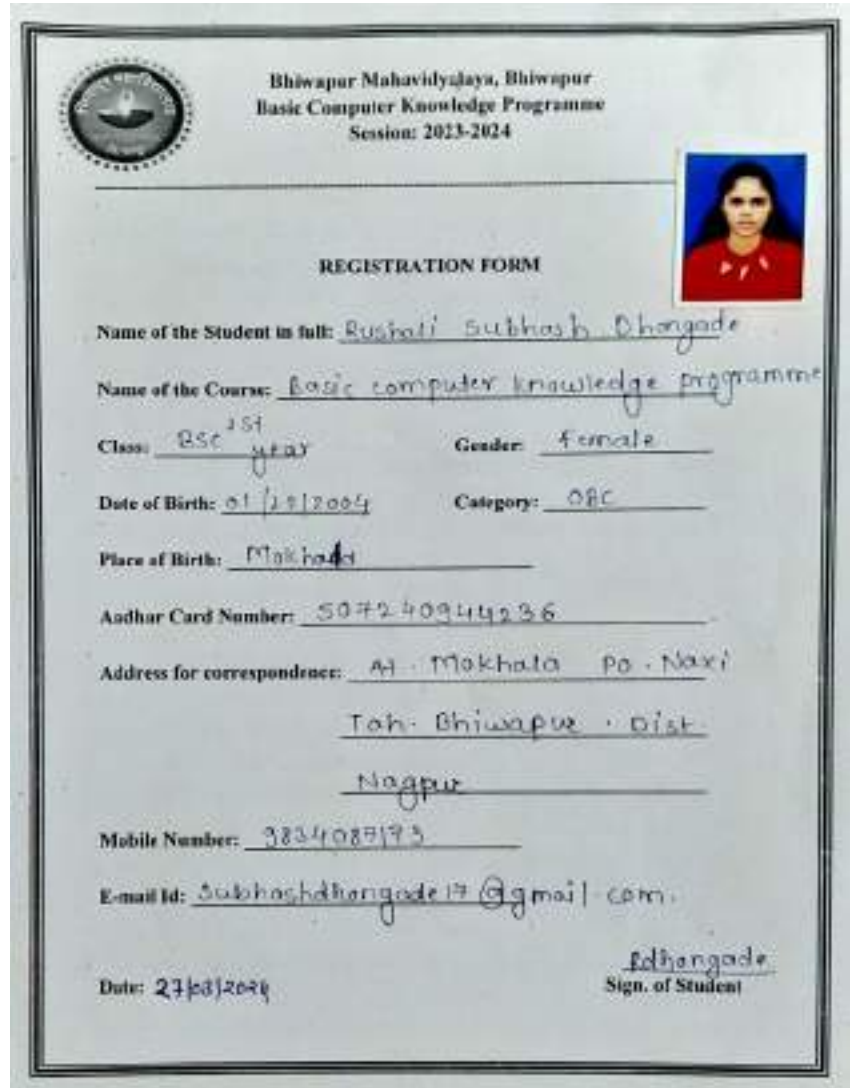 Bhiwapur Mahavidyalaya, Bhiwapur
Basic Computer Knowledge Programme
Session: 2023-2024
REGISTRATION FORM
Name of the Student in full: Rushali Subhash Dhongade
Name of the Course: Basic computer knowledge programme
Class: BSC 1st year Gender: female
Date of Birth: Category: OBC
Place of Birth:
Aadhar Card Number: 507240944236
Address for correspondence: At. Mokhala Po. Naxi
Tah. Bhiwapur . Dist.
Nagpur
Mobile Number:
E-mail Id: Subhashdhongade17@gmail.com.
Rdhongade
Date: 27/03/2024 Sign. of Student